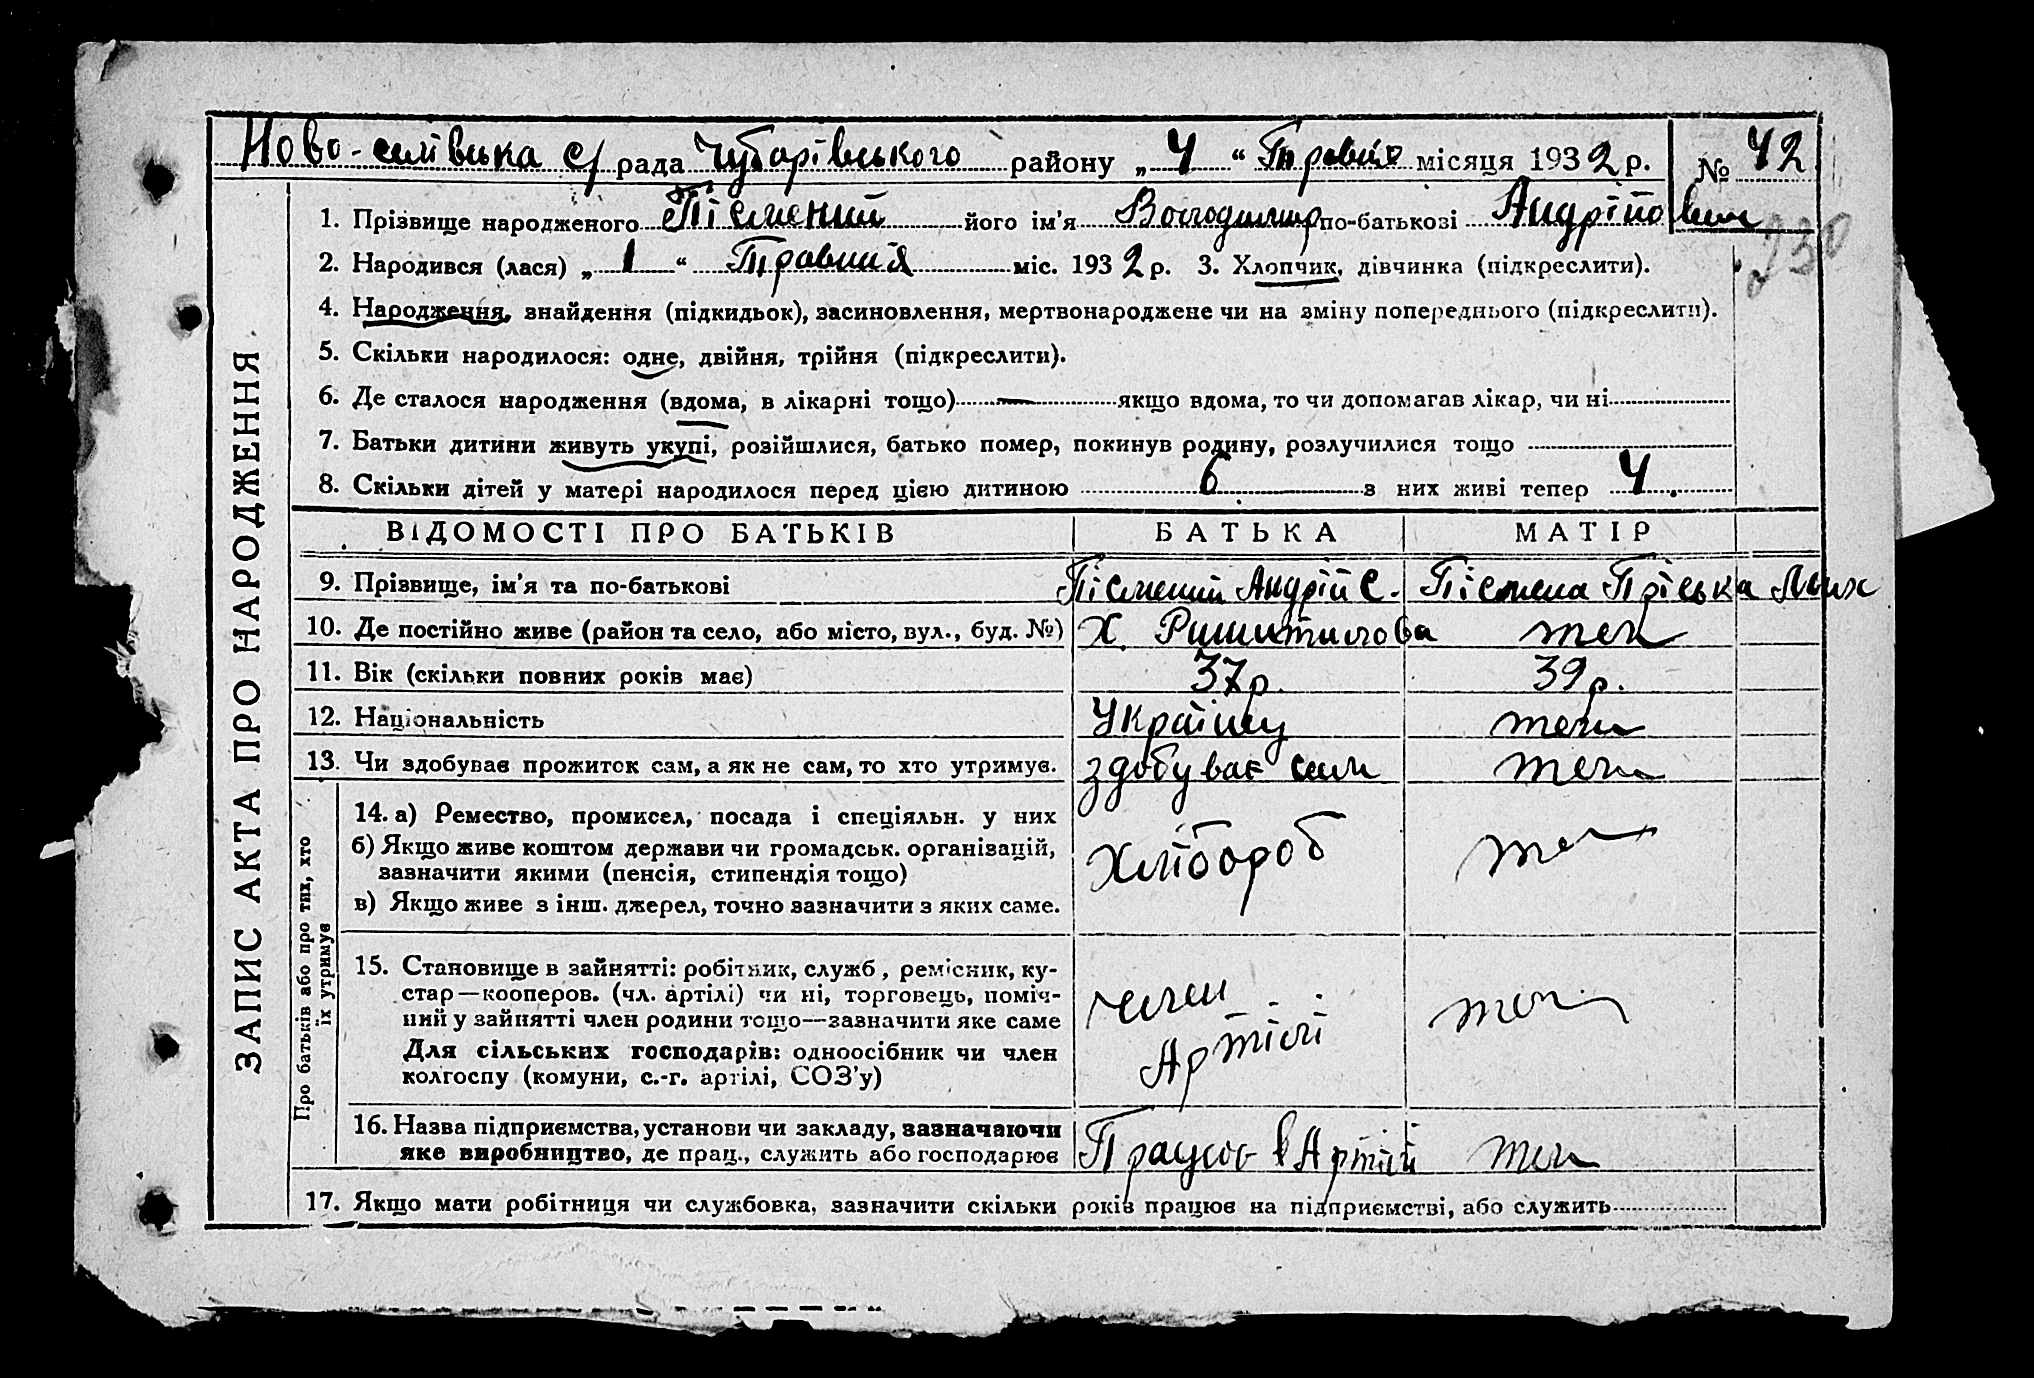 Ново-селівська с/рада Чубарівського району „4“ Травня місяця 1932 р. № 42
1. Прізвище народженого Пісмений його ім'я Володимир по-батькові Андрійович
230
2. Народився (лася) „1“ Травня міс. 1932 р. 3. Хлопчик, дівчинка (підкреслити).
4. Народження, знайдення (підкидьок), засиновлення, мертвонароджене чи на зміну попереднього (підкреслити).
5. Скільки народилося: одне, двійня, трійня (підкреслити).
6. Де сталося народження (вдома, в лікарні тощо) — якщо вдома, то чи допомагав лікар, чи ні
7. Батьки дитини живуть укупі, розійшлися, батько помер, покинув родину, розлучилися тощо
8. Скільки дітей у матері народилося перед цією дитиною 6 з них живі тепер 4.
ЗАПИС АКТА ПРО НАРОДЖЕННЯ
ВІДОМОСТІ ПРО БАТЬКІВ БАТЬКА МАТІР
9. Прізвище, ім'я та по-батькові Пісмений Андрій С. Писмена Пріська Мих
10. Де постійно живе (район та село, або місто, вул., буд. №) Х. теж
11. Вік (скільки повних років має) 37р. 39р.
12. Національність Україну теж
13. Чи здобуває прожиток сам, а як не сам, то хто утримує. здобуває сам теж
Про батьків або про тих, хто
їх утримує
14. а) Ремество, промисел, посада і спеціяльн. у них
б) Якщо живе коштом держави чи громадськ. організацій,
зазначити якими (пенсія, стипендія тощо)
в) Якщо живе з інш. джерел, точно зазначити з яких саме.
Хлібороб теж
15. Становище в зайнятті: робітник, служб, ремісник, ку-
стар—кооперов. (чл. артілі) чи ні, торговець, поміч-
ний у зайнятті член родини тощо—зазначити яке саме
Для сільських господарів: одноосібник чи член
колгоспу (комуни, с.-г. артілі, СОЗ'у)
член
Артілі теж
16. Назва підприємства, установи чи закладу, зазначаючи
яке виробництво, де прац., служить або господарює
Працює в Артілі теж
17. Якщо мати робітниця чи службовка, зазначити скільки років працює на підприємстві, або служить